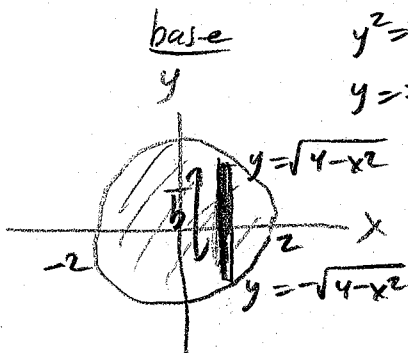 base
y² =
y
y =
y = √4-x²
b
x
-2
2
y = -√4-x²